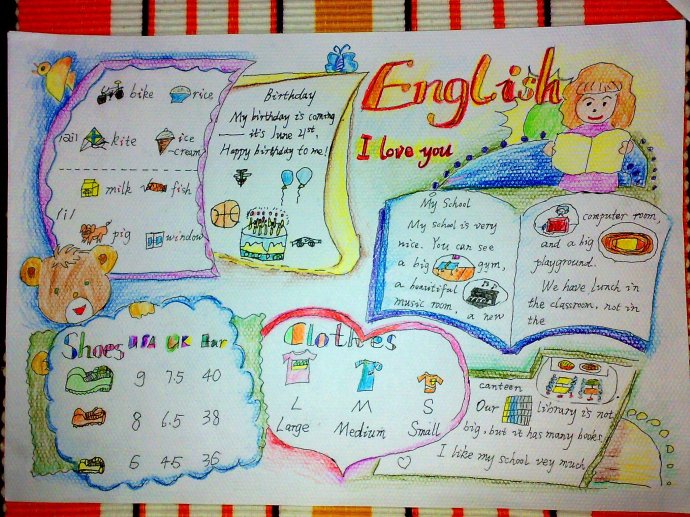 English
I love you
bike rice
/ai/ kite ice
-cream
milk fish
/i/
pig window
Birthday
My birthday is coming
—— it's June 21st.
Happy birthday to me!
My School
My school is very
nice. You can see
a big gym,
a beautiful
music room, a new
computer room,
and a big
playground.
We have lunch in
the classroom, not in
the
canteen
Our library is not
big, but it has many books
I like my school vey much
Shoes USA UK Eur
9 7.5 40
8 6.5 38
6 4.5 36
Clothes
L M S
Large Medium Small